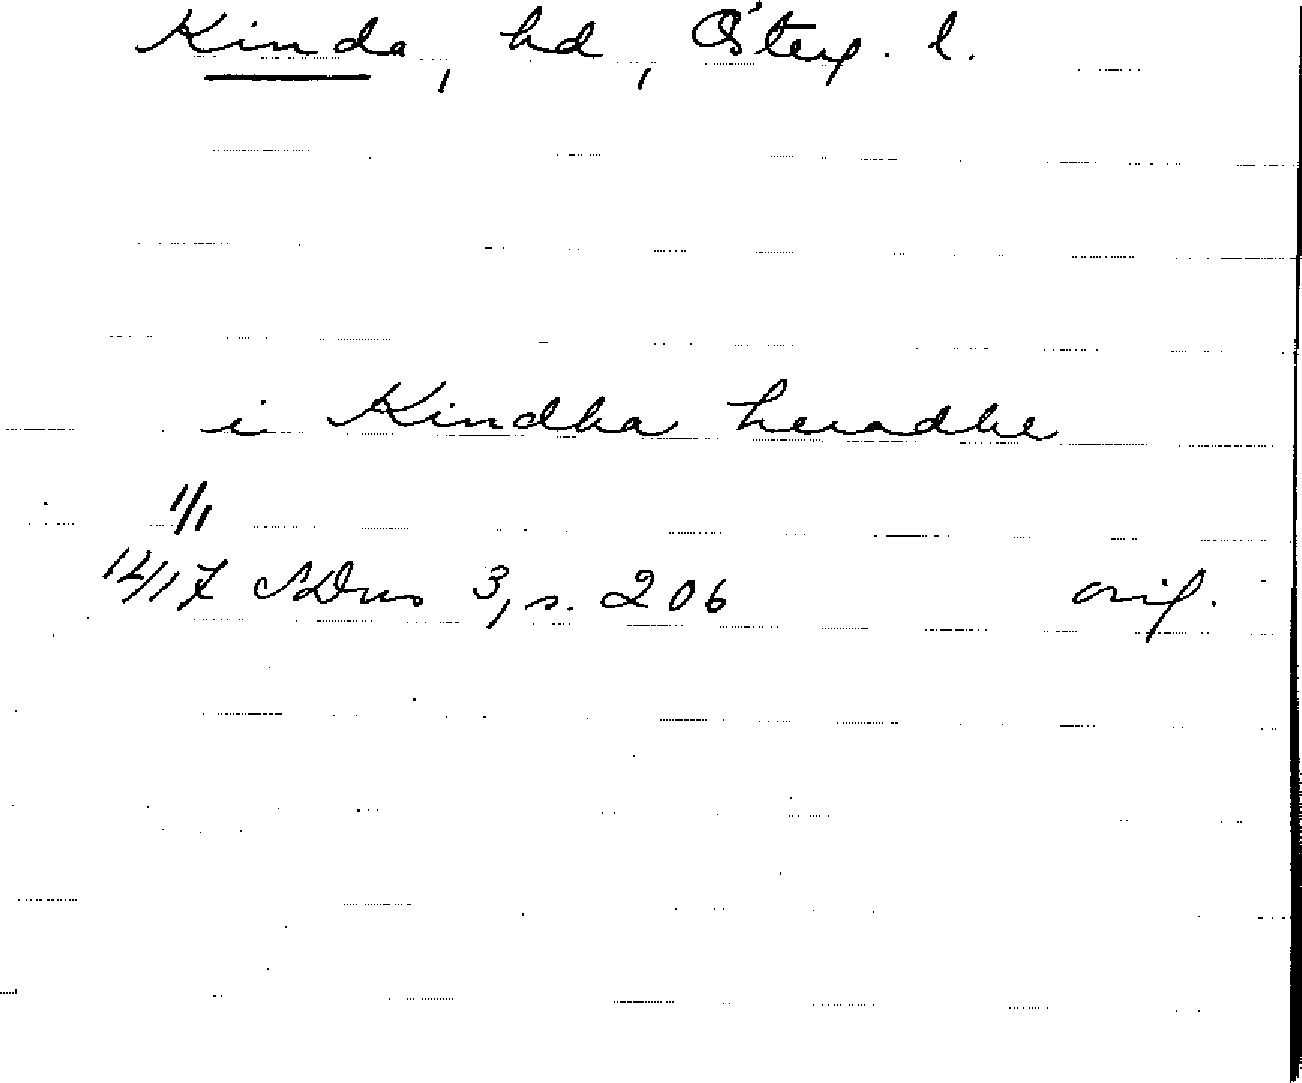 Kinda, hd, Österg. l.
i Kindha heradhe
1/1
1417 SDns 3, s. 206 orig.